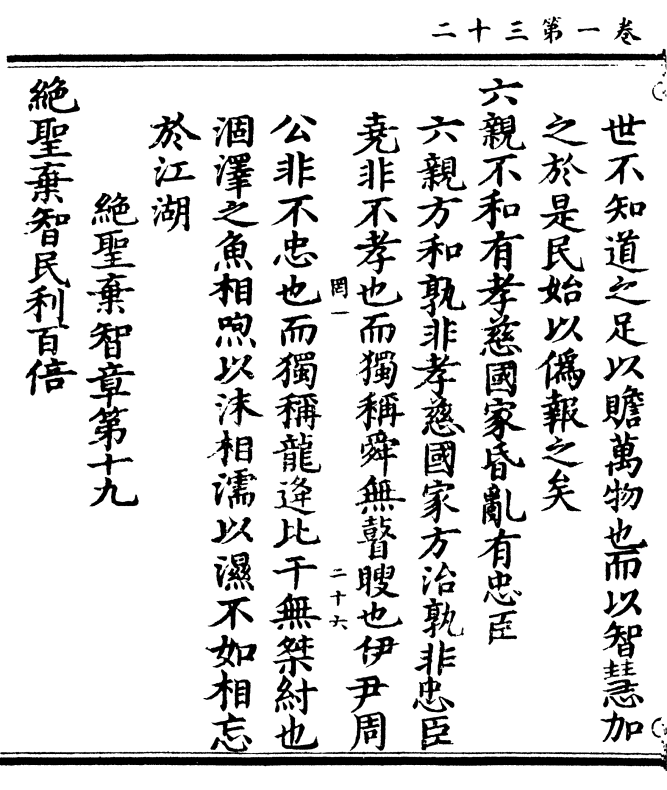 卷一第三十二
世不知道之足以贍萬物也而以智慧加
之於是民始以偽報之矣
六親不和有孝慈國家昏亂有忠臣
六親方和孰非孝慈國家方治孰非忠臣
堯非不孝也而獨稱舜無瞽瞍也伊尹周
罔一
二十六
公非不忠也而獨稱龍逄比干無桀紂也
涸澤之魚相喣以沫相濡以濕不如相忘
於江湖
絕聖棄智章第十九
絕聖棄智民利百倍